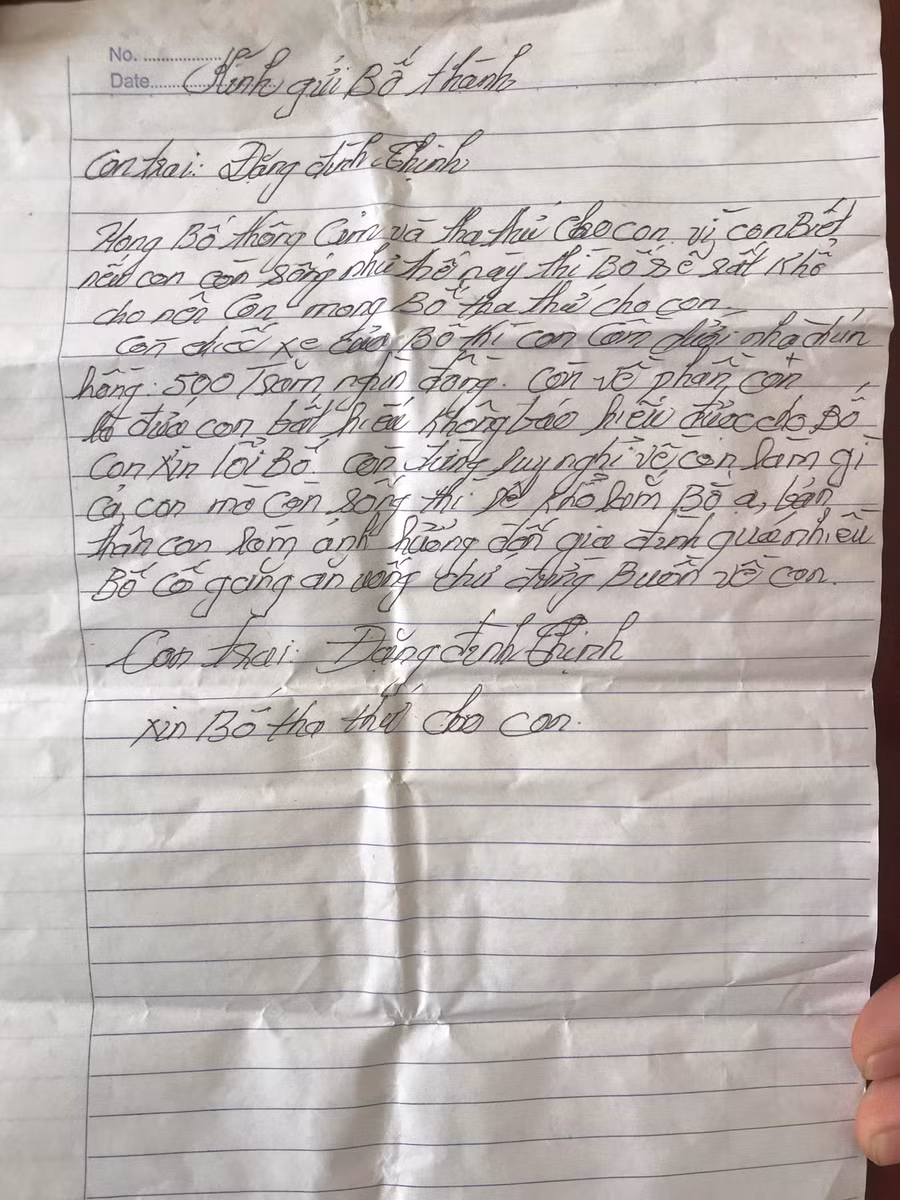 No. ....................
Date....................
Kính gửi Bố thành
Con trai: Đặng đình Thịnh
Mong Bố thông Cảm và tha thứ cho con vì con Biết
nếu con còn sống như thế này thì Bố sẽ rất Khổ
cho nên Con mong Bố tha thứ cho con.
Còn chiếc xe của Bố thì con Cầm dưới nhà
hồng: 500 Trăm nghìn đồng. Còn về phần con
là đứa con bất hiếu Không báo hiếu được cho Bố
Con xin lỗi Bố. còn đừng suy nghĩ về con làm gì
cả con mà Còn sống thì sẽ khổ lắm Bố ạ, bản
thân con làm ảnh hưởng đến gia đình quá nhiều
Bố Cố gắng ăn uống chứ đừng Buồn về con.
Con trai: Đặng đình Thịnh
Xin Bố tha thứ cho con.